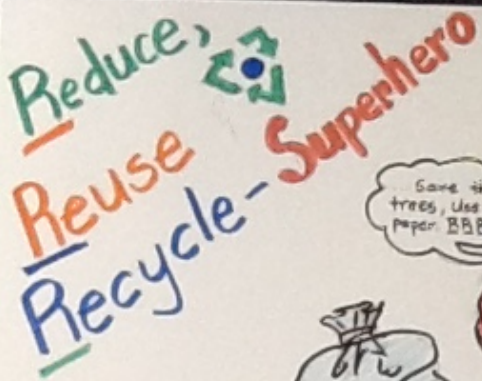 Reduce,
Reuse
Recycle-Superhero
Save
trees, use
paper.